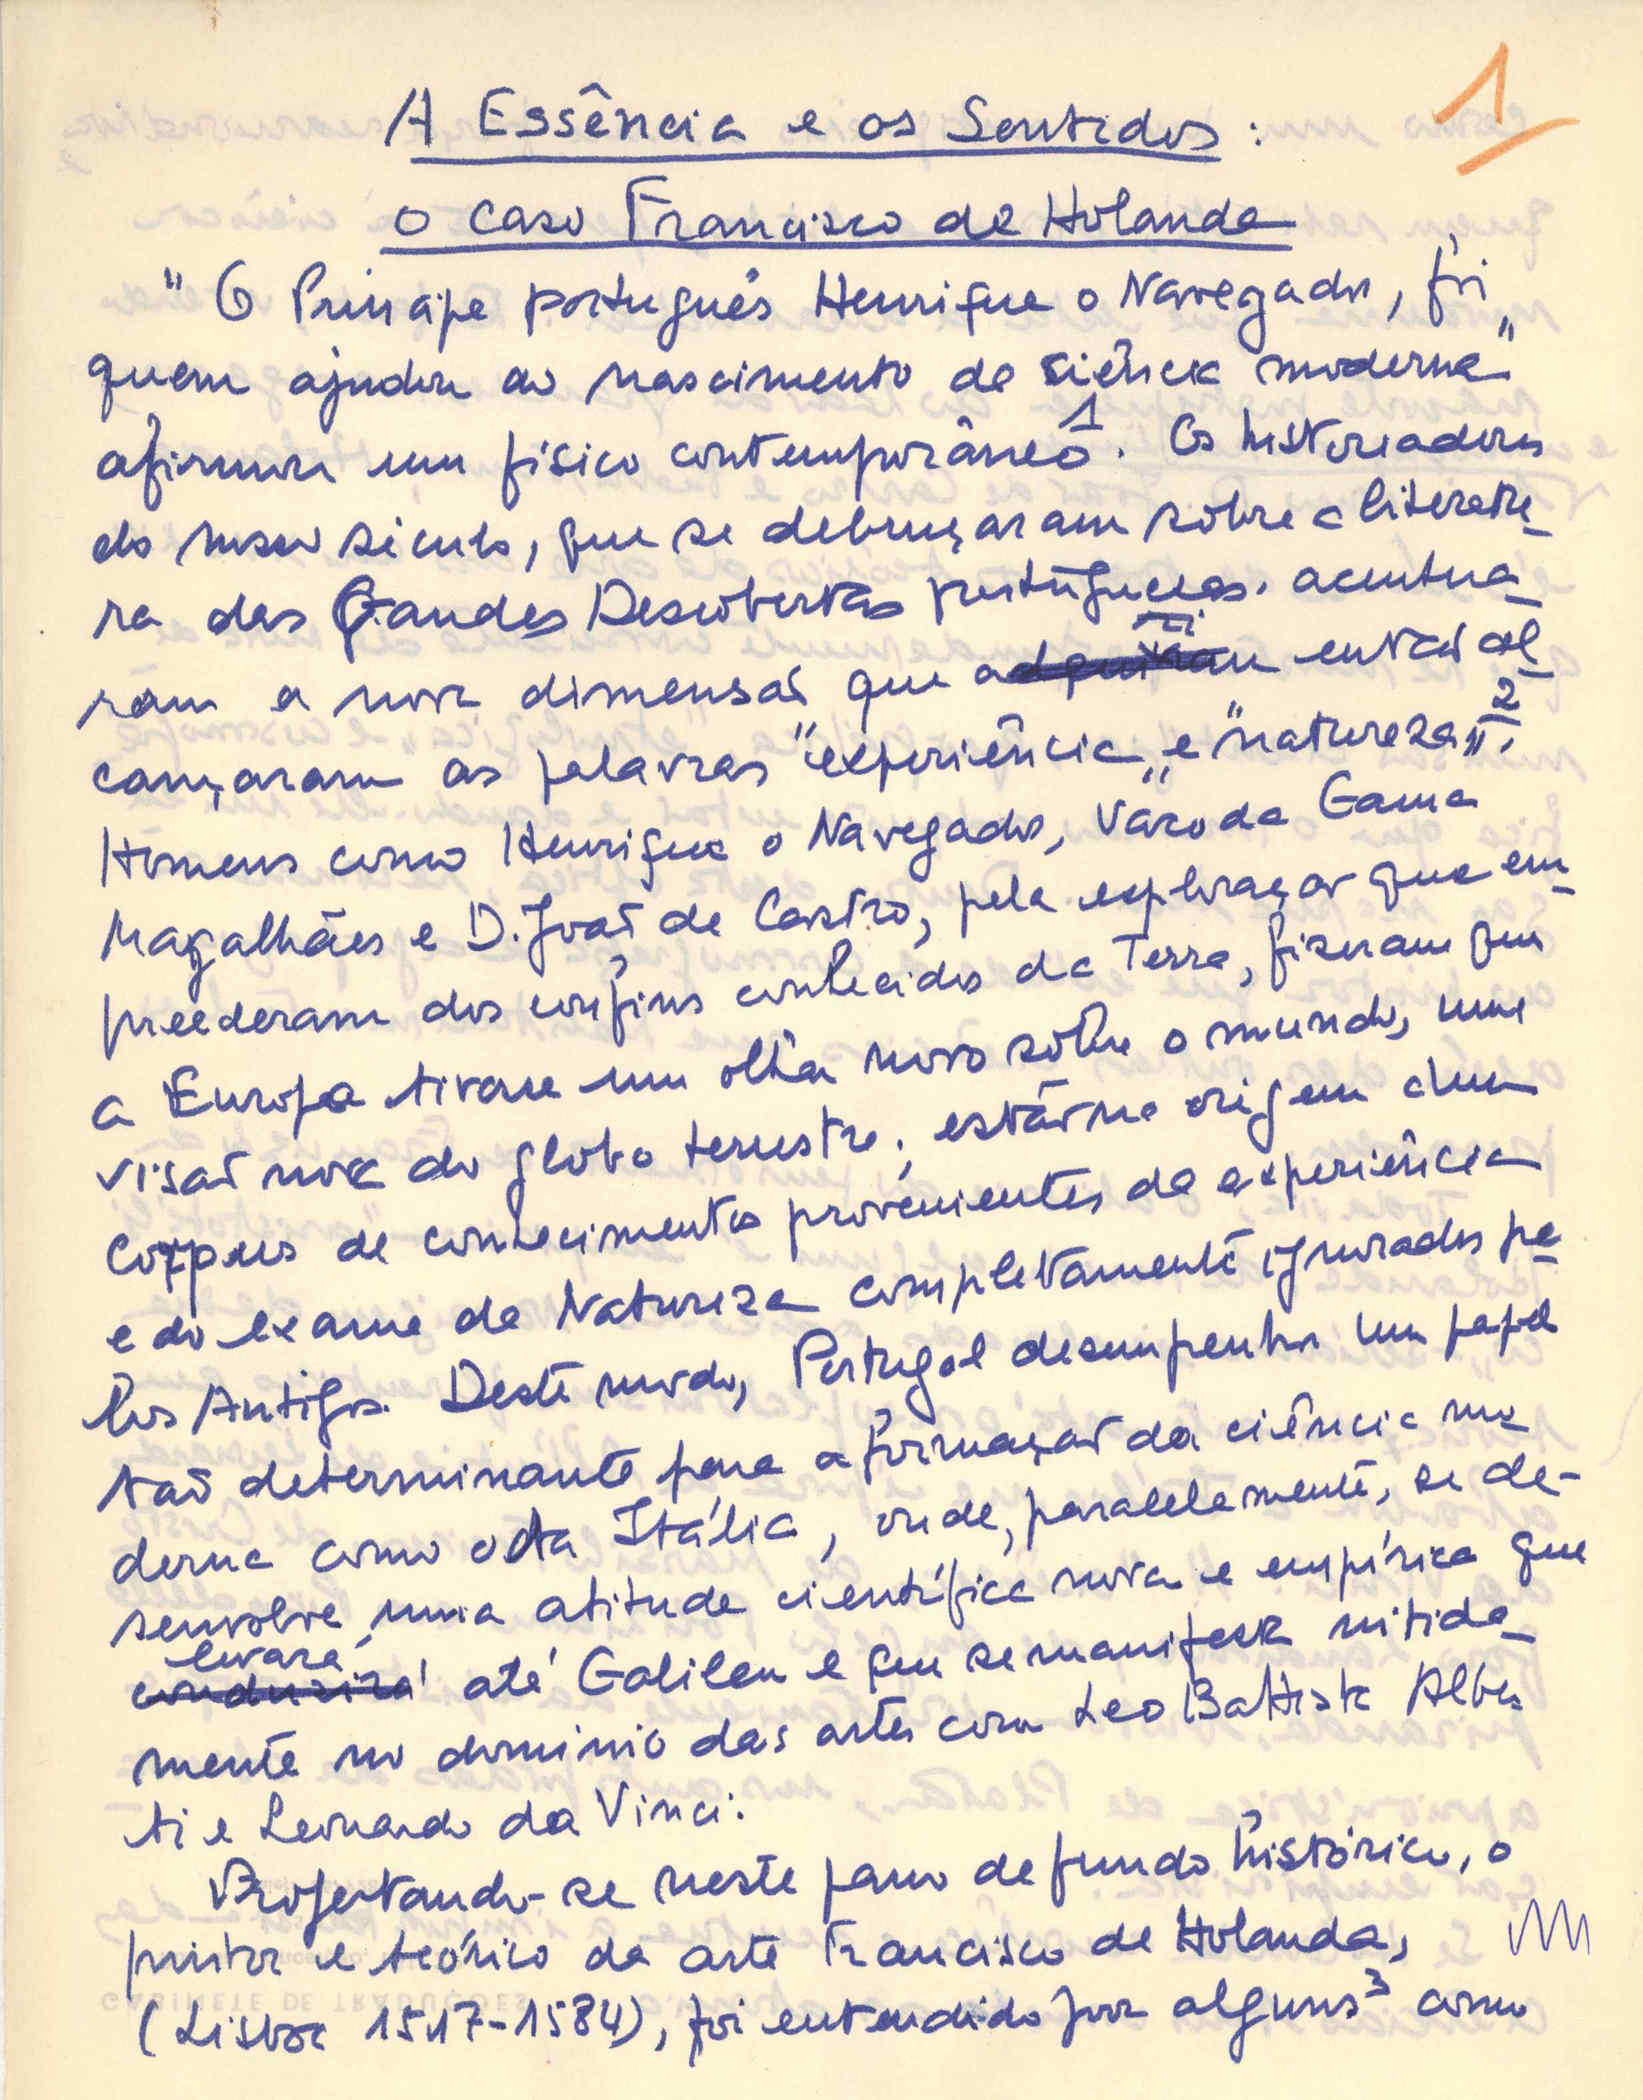 1
A Essência e os Sentidos :
o caso Francisco de Holanda
"O Príncipe português Henrique o Navegador, foi
quem ajudou ao nascimento da ciência moderna"
afirmou um físico contemporâneo 1. Os historiadores
do nosso século, que se debruçaram sôbre a literatu_
ra das Grandes Descobertas portuguesas, acentua_
ram a nova dimensão que adquiriram então al_
cançaram as palavras "experiência" e "natureza" 2.
Homens como Henrique o Navegador, Vasco da Gama
Magalhães e D. João de Castro, pela exploração que em_
preederam dos confins conhecidos da Terra, fizeram que
a Europa tivesse um olhar novo sôbre o mundo, uma
visão nova do globo terrestre; estão na origem dum
Corpus de conhecimentos provenientes da experiência
e do exame da Natureza completamente ignorados pe_
los Antigos. Deste modo, Portugal desempenhou um papel
tão determinante para a formação da ciência mo_
derna como o da Itália, onde, paralelamente, se de-
senvolve uma atitude científica nova e empírica que
levará
conduzirá até Galileu e que se manifesta nitida_
mente no dominio das artes com Leo Battista Alber
ti e Leonardo da Vinci.
Projectando-se neste pano de fundo histórico, o
pintor e teórico da arte Francisco de Holanda,
(Lisboa 1517-1584), foi entendido por alguns 3 como
GABINETE DE TRADUÇÕES